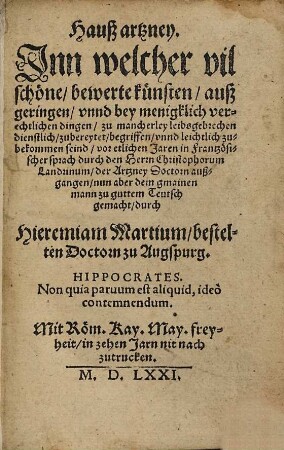 Hauß artzney.
Inn welcher vil
schöne/ bewerte künsten/ auß
geringen/ vnnd bey menigklich ver-
rechtlichen dingen/ zu mancherley leibsgebrechen
dienstlich/ zubereytet/ begriffen/ vnnd leichtlich zu-
bekommen seind/ vor etlichen Jaren in Frantzösi-
scher sprach durch den Herrn Christophorum
Landrinum/ der Artzney Doctorn auß-
gangen/ nun aber dem gmainen
mann zu guttem Teutsch
gemacht/ durch
Hieremiam Martium/ bestel-
ten Doctorn zu Augspurg.
HIPPOCRATES.
Non quia paruum est aliquid, ideò
contemnendum.
Mit Röm. Kay. May. frey-
heit/ in zehen Jarn nit nach
zutrucken.
M. D. LXXI.